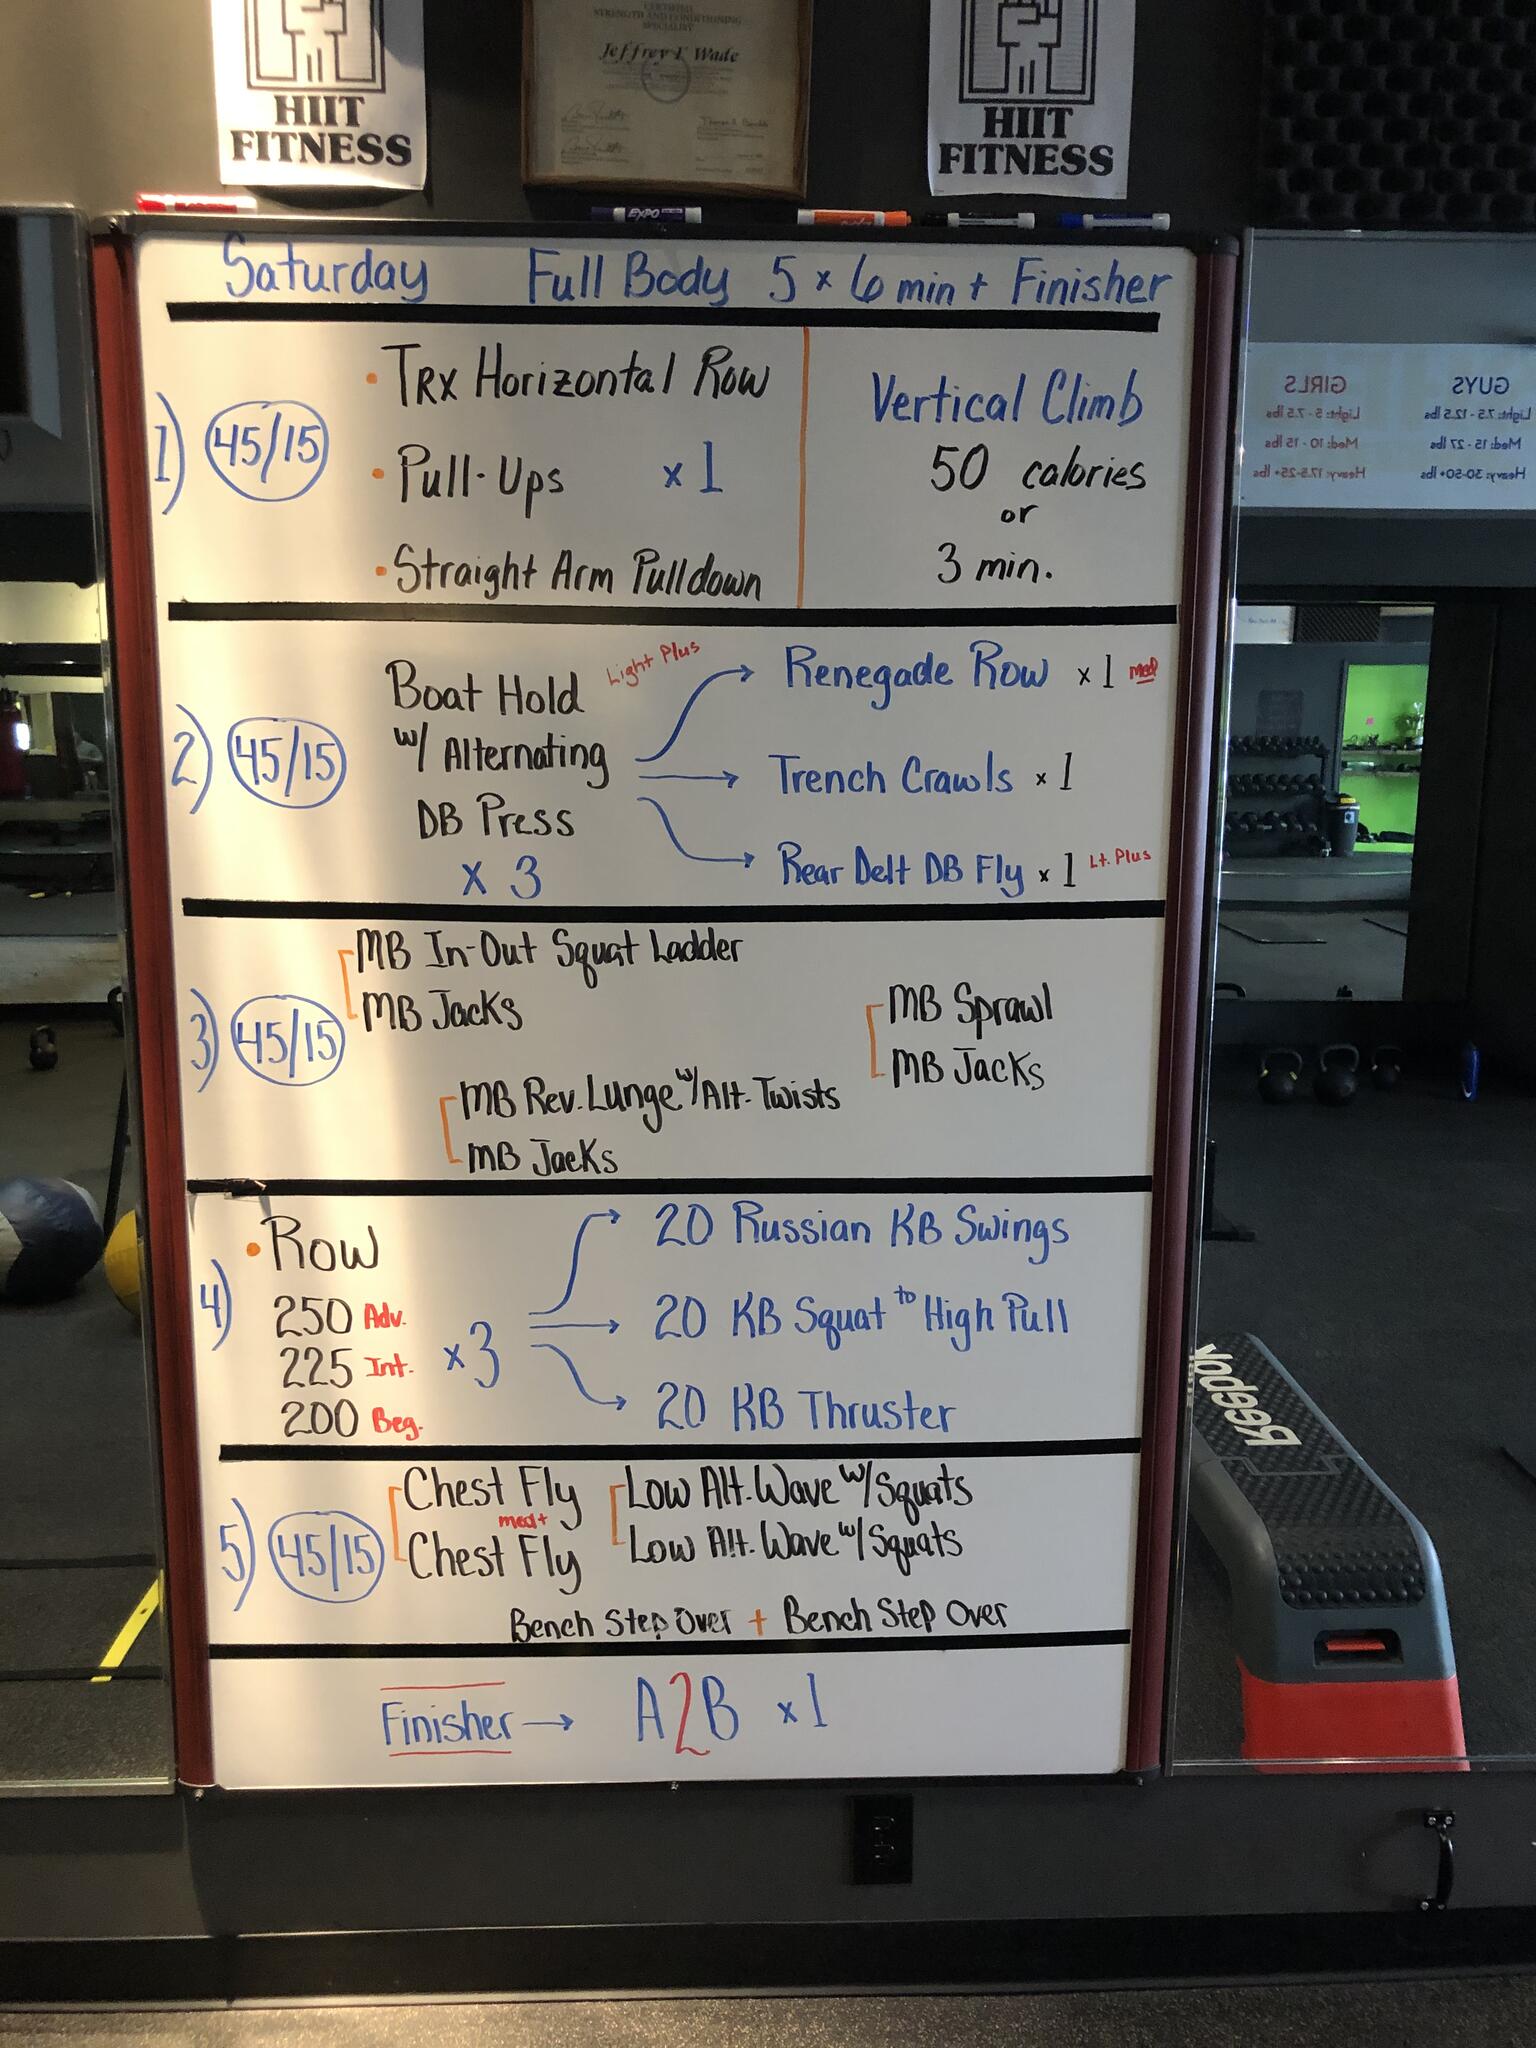 HIIT
FITNESS
CERTIFIED
STRENGTH AND CONDITIONING
SPECIALIST
Jeffrey T. Wade
HIIT
FITNESS
EXPO
Saturday Full Body 5 x 6 min + Finisher
1) 45/15
• TRX Horizontal Row
• Pull-Ups x 1
• Straight Arm Pulldown
Vertical Climb
50 calories
or
3 min.
2) 45/15
Boat Hold Light Plus
w/ Alternating
DB Press
x 3
Renegade Row x 1 med
Trench Crawls x 1
Rear Delt DB Fly x 1 Lt. Plus
3) 45/15
MB In-Out Squat Ladder
MB Jacks
MB Rev. Lunge w/ Alt. Twists
MB Jacks
MB Sprawl
MB Jacks
4)
• Row
250 Adv.
225 Int.
200 Beg.
x 3
20 Russian KB Swings
20 KB Squat to High Pull
20 KB Thruster
5) 45/15
Chest Fly
med+
Chest Fly
Low Alt. Wave w/ Squats
Low Alt. Wave w/ Squats
Bench Step Over + Bench Step Over
Finisher → A2B x 1
GUYS
Light: 7.5 - 12.5 lbs
Med: 15 - 27 lbs
Heavy: 30-50+ lbs
GIRLS
Light: 5 - 7.5 lbs
Med: 10 - 15 lbs
Heavy: 17.5-25+ lbs
Reebok